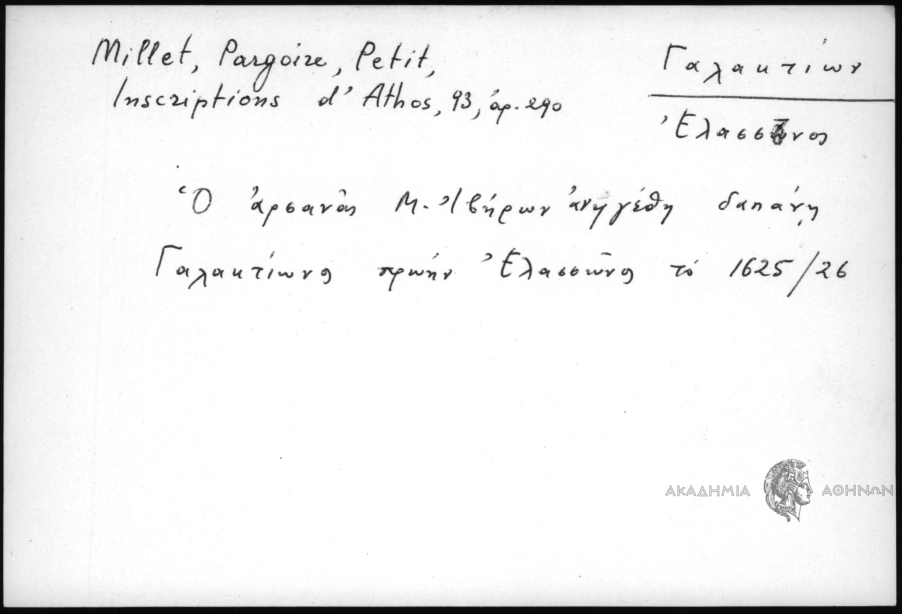 Millet, Pargoire, Petit,
Inscriptions d'Athos, 93, ἀρ. 290
Γαλακτίων
Ἐλασσῶνος
Ὁ ἀρσανᾶς Μ. Ἰβήρων ἀνηγέθη δαπάνῃ
Γαλακτίωνος πρώην Ἐλασσῶνος τό 1625/26
ΑΚΑΔΗΜΙΑ ΑΘΗΝΩΝ